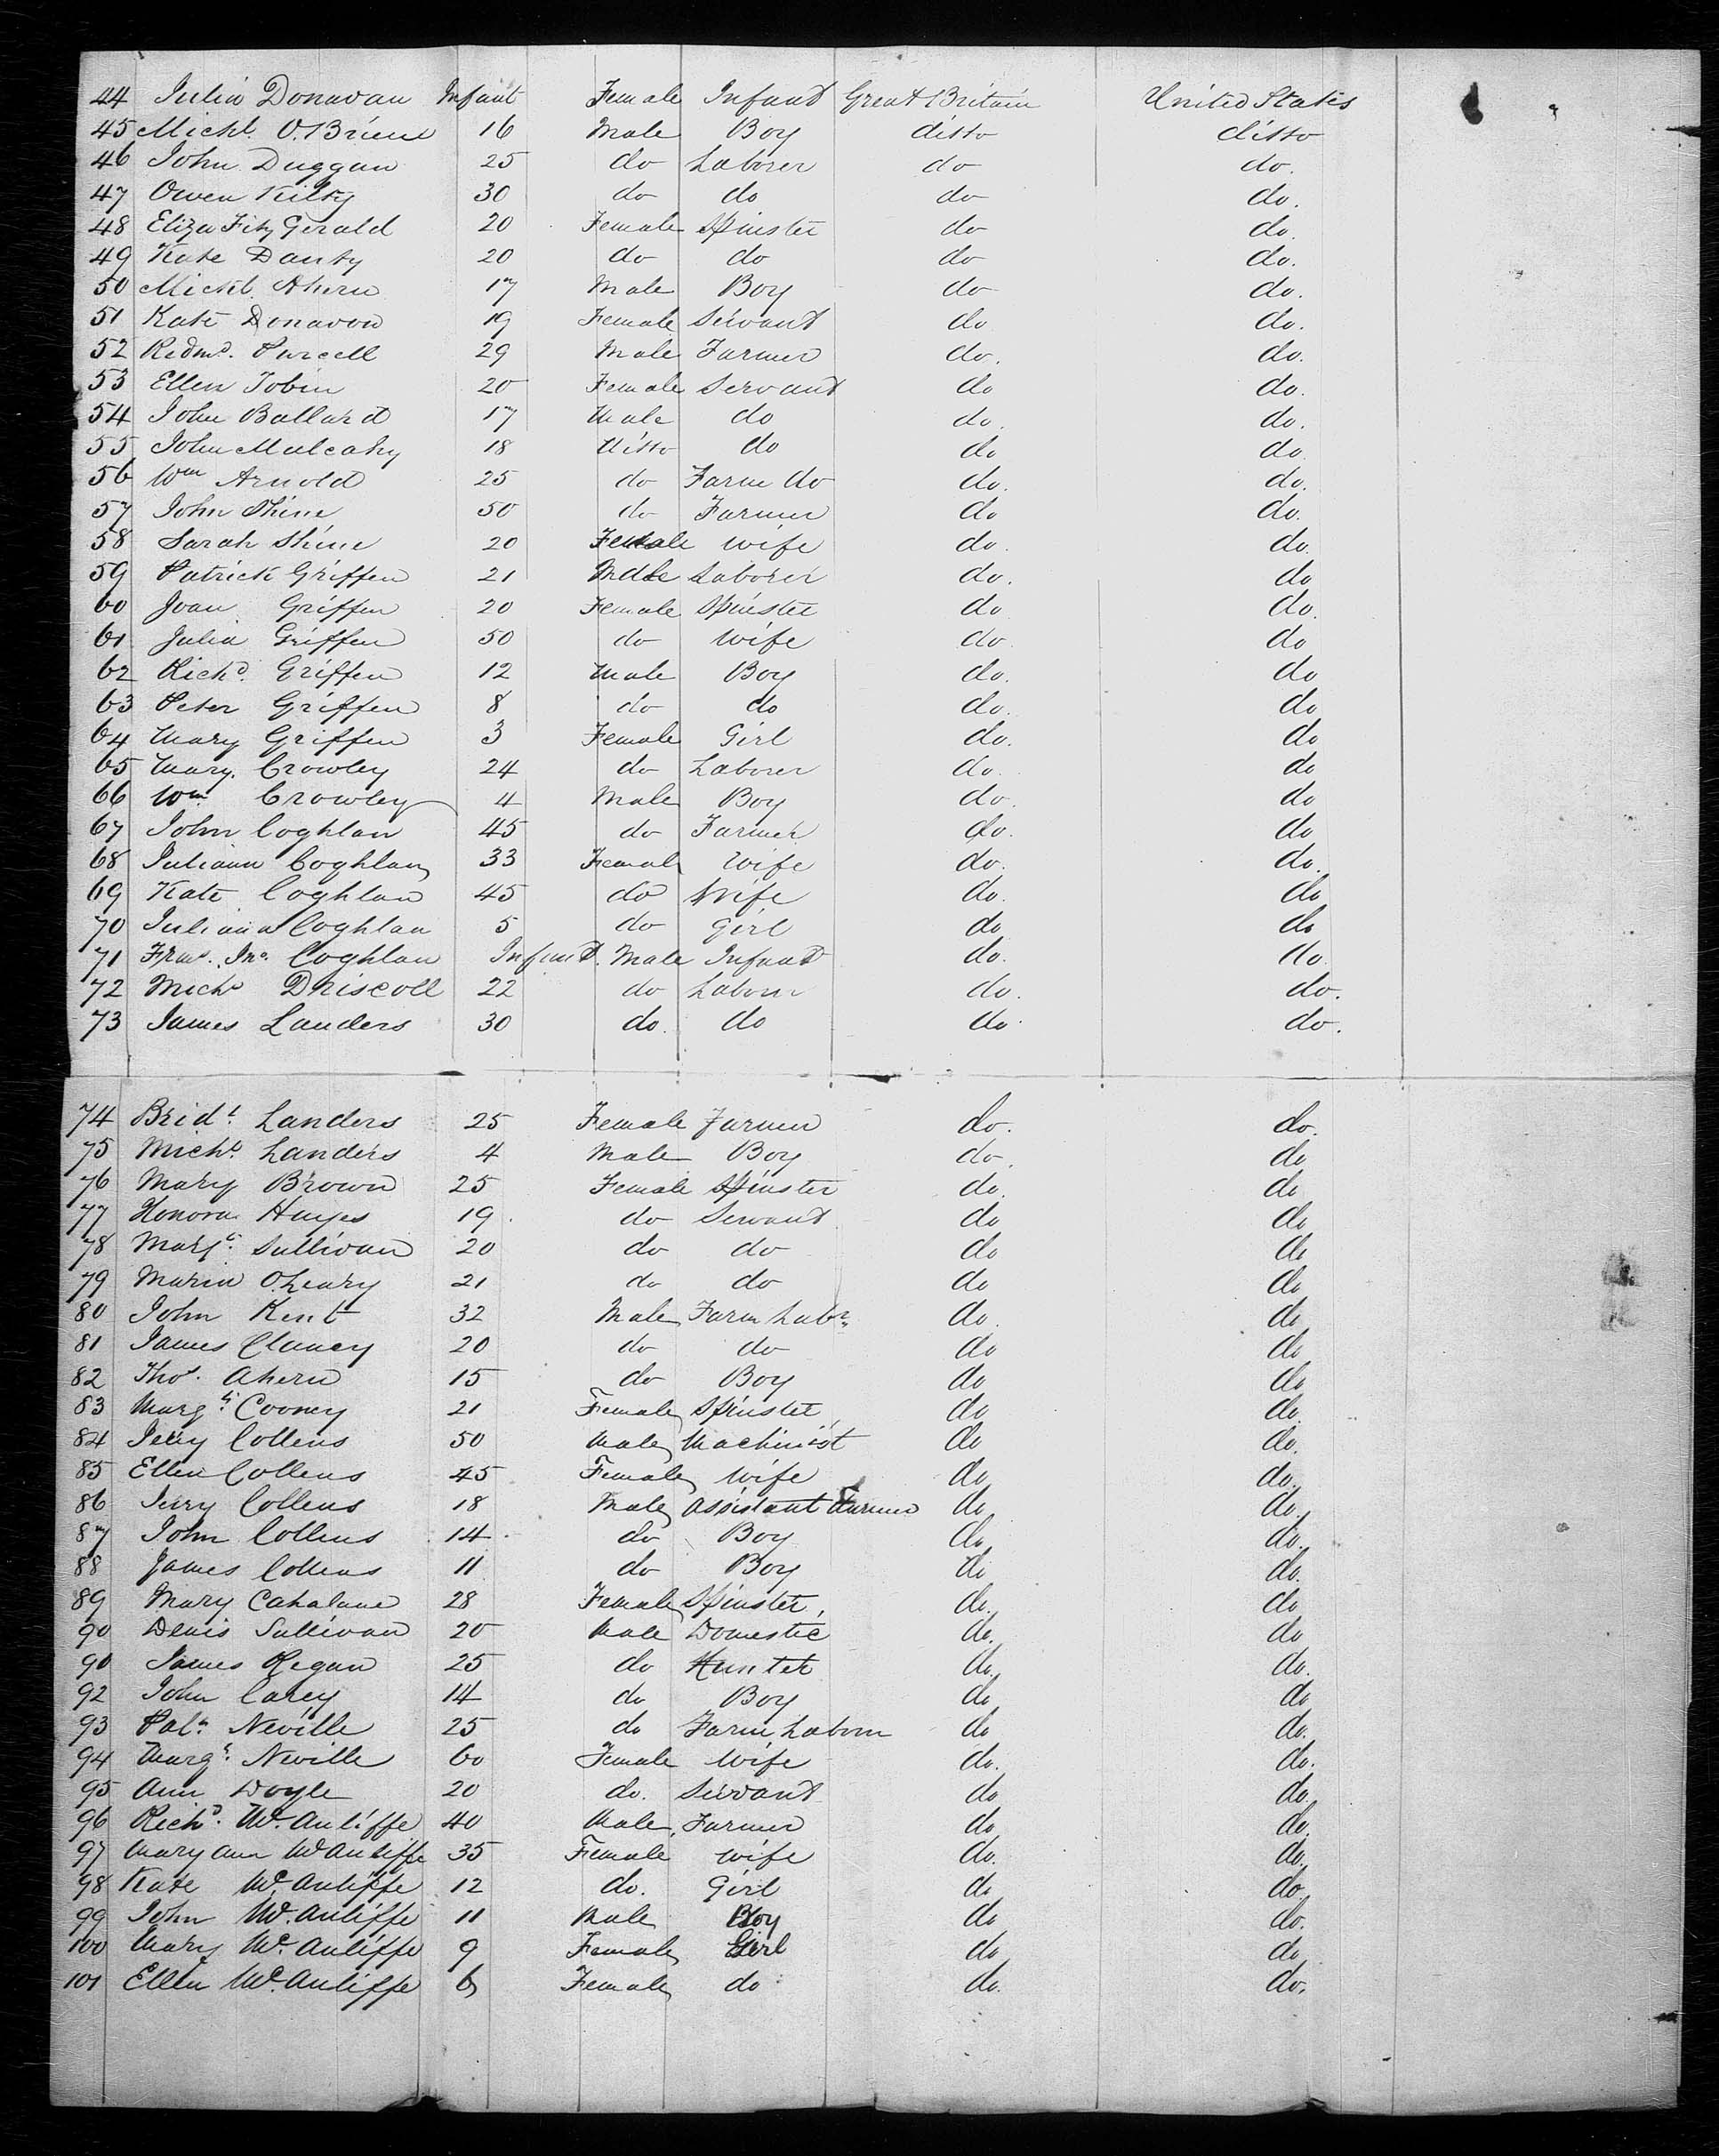 44 Julia Donavan Infant Female Infant Great Britain United States
45 Michl. O.Brien 16 Male Boy ditto ditto
46 John Duggan 25 do Laborer do do.
47 Owen 30 do do do do.
48 Eliza Fitz Gerald 20 Female Spinster do do.
49 Kate Danty 20 do do do do.
50 Michl. Ahern 17 Male Boy do do.
51 Kate Donavon 19 Female Servant do do.
52 Redmd. Purcell 29 Male Farmer do. do.
53 Ellen Tobin 20 Female Servant do do.
54 John Ballard 17 Male do do. do.
55 John Mulcahy 18 ditto do do do.
56 Wm Arnold 25 do Farm do do. do.
57 John Shine 50 do Farmer do do.
58 Sarah Shine 20 Female Wife do. do.
59 Patrick Griffen 21 Male Laborer do. do
60 Joan Griffen 20 Female Spinster do do.
61 Julia Griffen 50 do Wife do. do
62 Richd. Griffen 12 Male Boy do. do
63 Peter Griffen 8 do do do. do
64 Mary Griffen 3 Female Girl do. do
65 Mary. Crowley 24 do Laborer do. do
66 Wm. Crowley 4 Male Boy do. do
67 John Coghlan 45 do Farmer do. do
68 Juliann Coghlan 33 Female Wife do. do.
69 Kate Coghlan 45 do Wife do. do
70 Juliana Coghlan 5 do Girl do do
71 Frans. Jno. Coghlan Infant. Male Infant do. do.
72 Michl Driscoll 22 do Laborer do. do.
73 James Landers 30 do. do do. do.
74 Bridt. Landers 25 Female Farmer do. do.
75 Michl. Landers 4 Male Boy do. do
76 Mary Brown 25 Female Spinster do. do
77 Honora Hayes 19. do Servant do do
78 Margt. Sullivan 20 do do do do
79 Maria O.Leary 21 do do do do
80 John Kent 32 Male Farm Labr. do. do
81 James Clancy 20 do do do do
82 Thos. Ahern 15 do Boy do do
83 Margt. Cooney 21 Female Spinster do do.
84 Jerry Collens 50 Male Machinist do do.
85 Ellen Collens 45 Female Wife do do.
86 Jerry Collens 18 Male Assistant Farmer do do.
87 John Collens 14. do Boy do do.
88 James Collens 11 do Boy do do.
89 Mary Cahalane 28 Female Spinster, do. do
90 Denis Sullivan 20 Male Domestic do. do
90 James Regan 25 do Hunter do. do.
92 John Carey 14 do Boy do do
93 Patk. Neville 25 do Farm Laborer do do.
94 Margt. Neville 60 Female Wife do. do.
95 Ann Doyle 20 do. Servant do do.
96 Richd. Mc.Auliffe 40 Male Farmer do do.
97 Mary Ann McAuliffe 35 Female Wife do. do.
98 Kate Mc.Auliffe 12 do. Girl do do.
99 John Mc.Auliffe 11 Male Boy do do.
100 Mary Mc.Auliffe 9 Female Girl do do
101 Ellen Mc.Auliffe 6 Female do do. do.